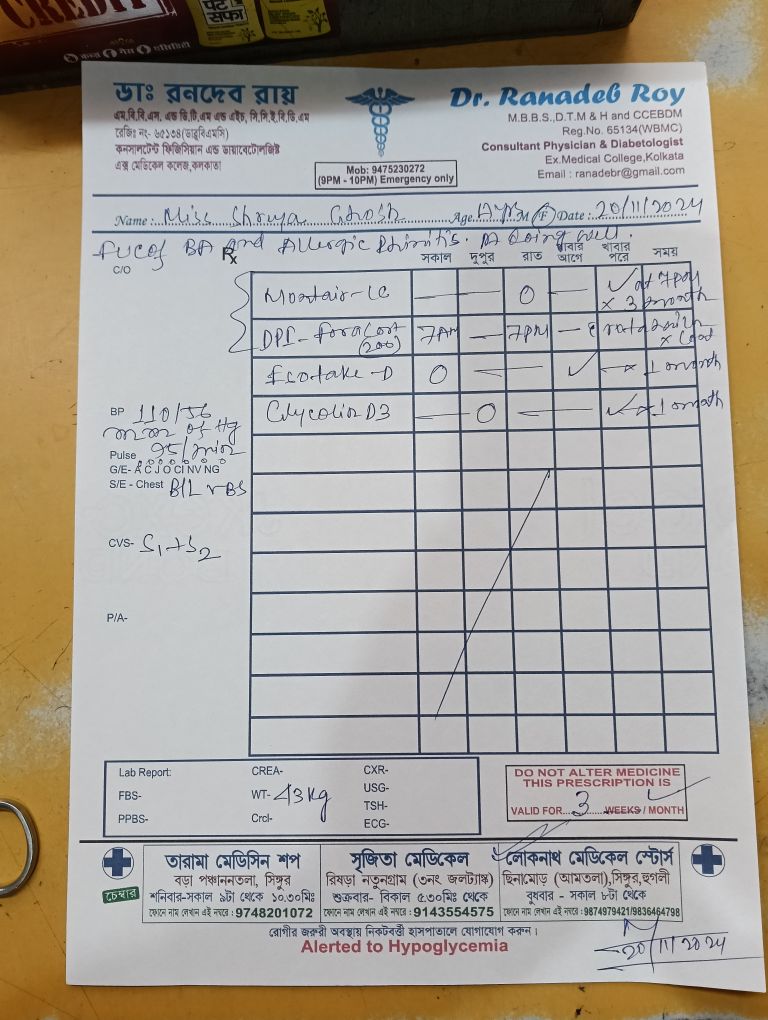 CREDIT
পেট সফা
ডাঃ রনদেব রায়
এম,বি,বি,এস, এন্ড ডি,টি,এম এন্ড এইচ, সি,সি,ই,বি,ডি,এম
রেজিঃ নং- ৬৫১৩৪(ডাব্লুবিএমসি)
কনসালটেন্ট ফিজিসিয়ান এন্ড ডায়াবেটোলজিষ্ট
এক্স মেডিকেল কলেজ,কলকাতা
Mob: 9475230272
(9PM - 10PM) Emergency only
Dr. Ranadeb Roy
M.B.B.S.,D.T.M & H and CCEBDM
Reg.No. 65134(WBMC)
Consultant Physician & Diabetologist
Ex.Medical College,Kolkata
Email : ranadebr@gmail.com
Name : Miss Shreya Ghosh Age M (F) Date : 20/11/2024
BA and Allergic Rhinitis. doing well.
C/O
Rx
সকাল দুপুর রাত খাবার আগে খাবার পরে সময়
Montair-LC — — O — ✓ at 7PM x 3 month
DPI-Foracort (200) 7AM — 7PM —
— D O — — ✓ — x 1 month
D3 — O — — ✓ x 1 month
BP 110/56
mm of Hg
Pulse 95/min
G/E- A C J O CI NV NG
S/E - Chest B/L VBS
CVS- S1+S2
P/A-
Lab Report: CREA- CXR-
FBS- WT- 43 kg USG-
TSH-
PPBS- Crcl- ECG-
DO NOT ALTER MEDICINE
THIS PRESCRIPTION IS
VALID FOR 3 WEEKS / MONTH
চেম্বার
তারামা মেডিসিন শপ
বড়া পঞ্চাননতলা, সিঙ্গুর
শনিবার-সকাল ৯টা থেকে ১০.৩০মিঃ
ফোনে নাম লেখান এই নম্বরে : 9748201072
সৃজিতা মেডিকেল
রিষড়া নতুনগ্রাম (৩নং জলট্যাঙ্ক)
শুক্রবার- বিকাল ৫.৩০মিঃ থেকে
ফোনে নাম লেখান এই নম্বরে : 9143554575
লোকনাথ মেডিকেল স্টোর্স
ছিনামোড় (আমতলা),সিঙ্গুর,হুগলী
বুধবার - সকাল ৮টা থেকে
ফোনে নাম লেখান এই নম্বরে : 9874979421/9836464798
রোগীর জরুরী অবস্থায় নিকটবর্ত্তী হাসপাতালে যোগাযোগ করুন।
Alerted to Hypoglycemia
20/11/2024